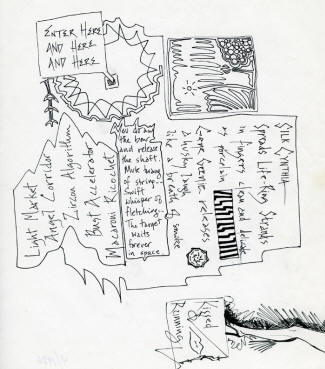 ENTER HERE
AND HERE
AND HERE
SILK SYNTHIA
SPREADS LIFE-RAY STRANDS
in fingers clean and delicate
as porcelain
Genie Seattle releases
a husky laugh
like a breath of smoke
You draw
the bow
and release
the shaft.
Mute twang
of string.
Swift
whisper of
fletching.
The target
waits
forever
in space.
Light Market
Angel Corridor
Zircon Algorithm
Burst Accelerator
Macaroni Ricochet
Kissed
Running